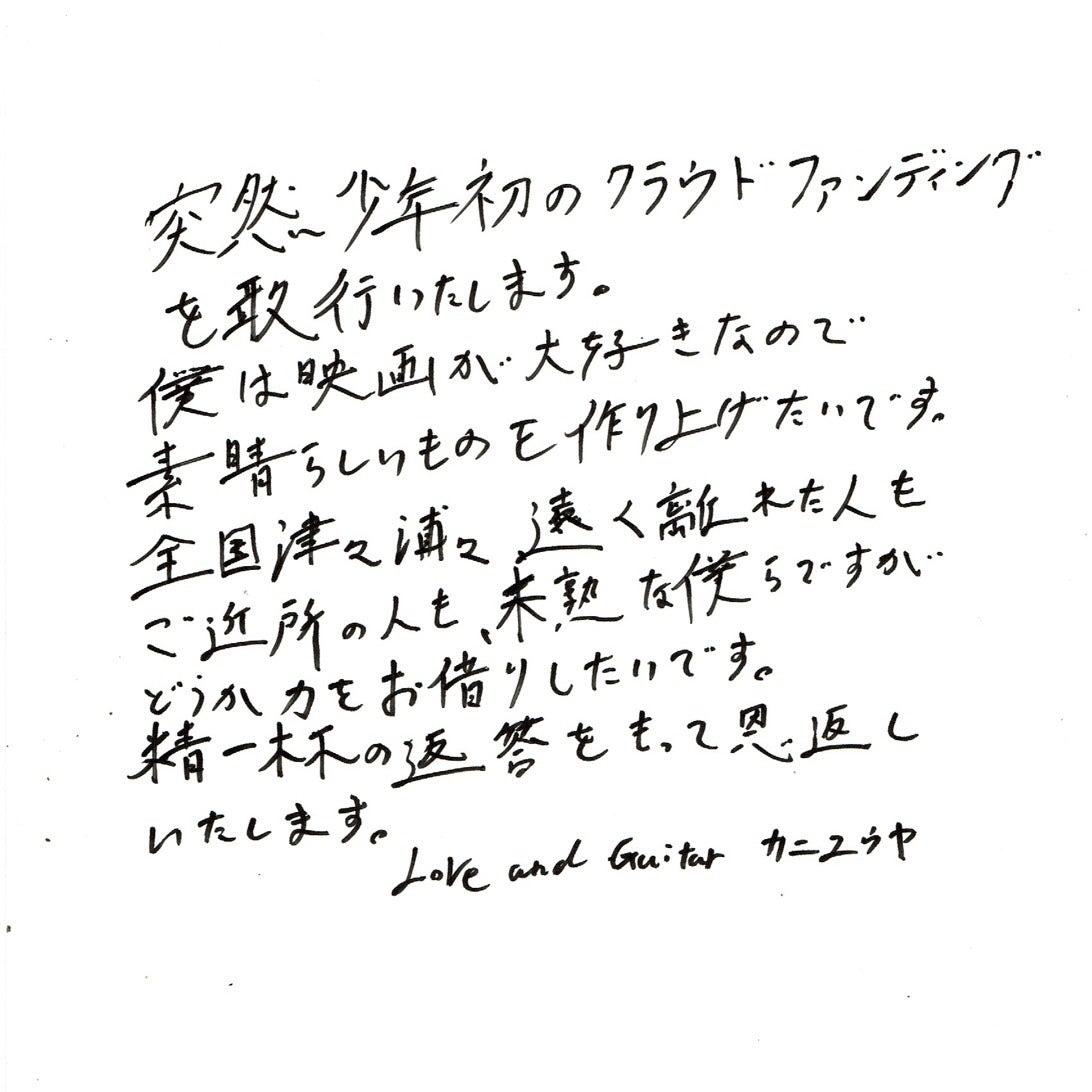 突然少年初のクラウドファンディング
を敢行いたします。
僕は映画が大好きなので
素晴らしいものを作り上げたいです。
全国津々浦々、遠く離れた人も
ご近所の人も、未熟な僕らですが
どうか力をお借りしたいです。
精一杯の返答をもって恩返し
いたします。
Love and Guitar カニユウヤ